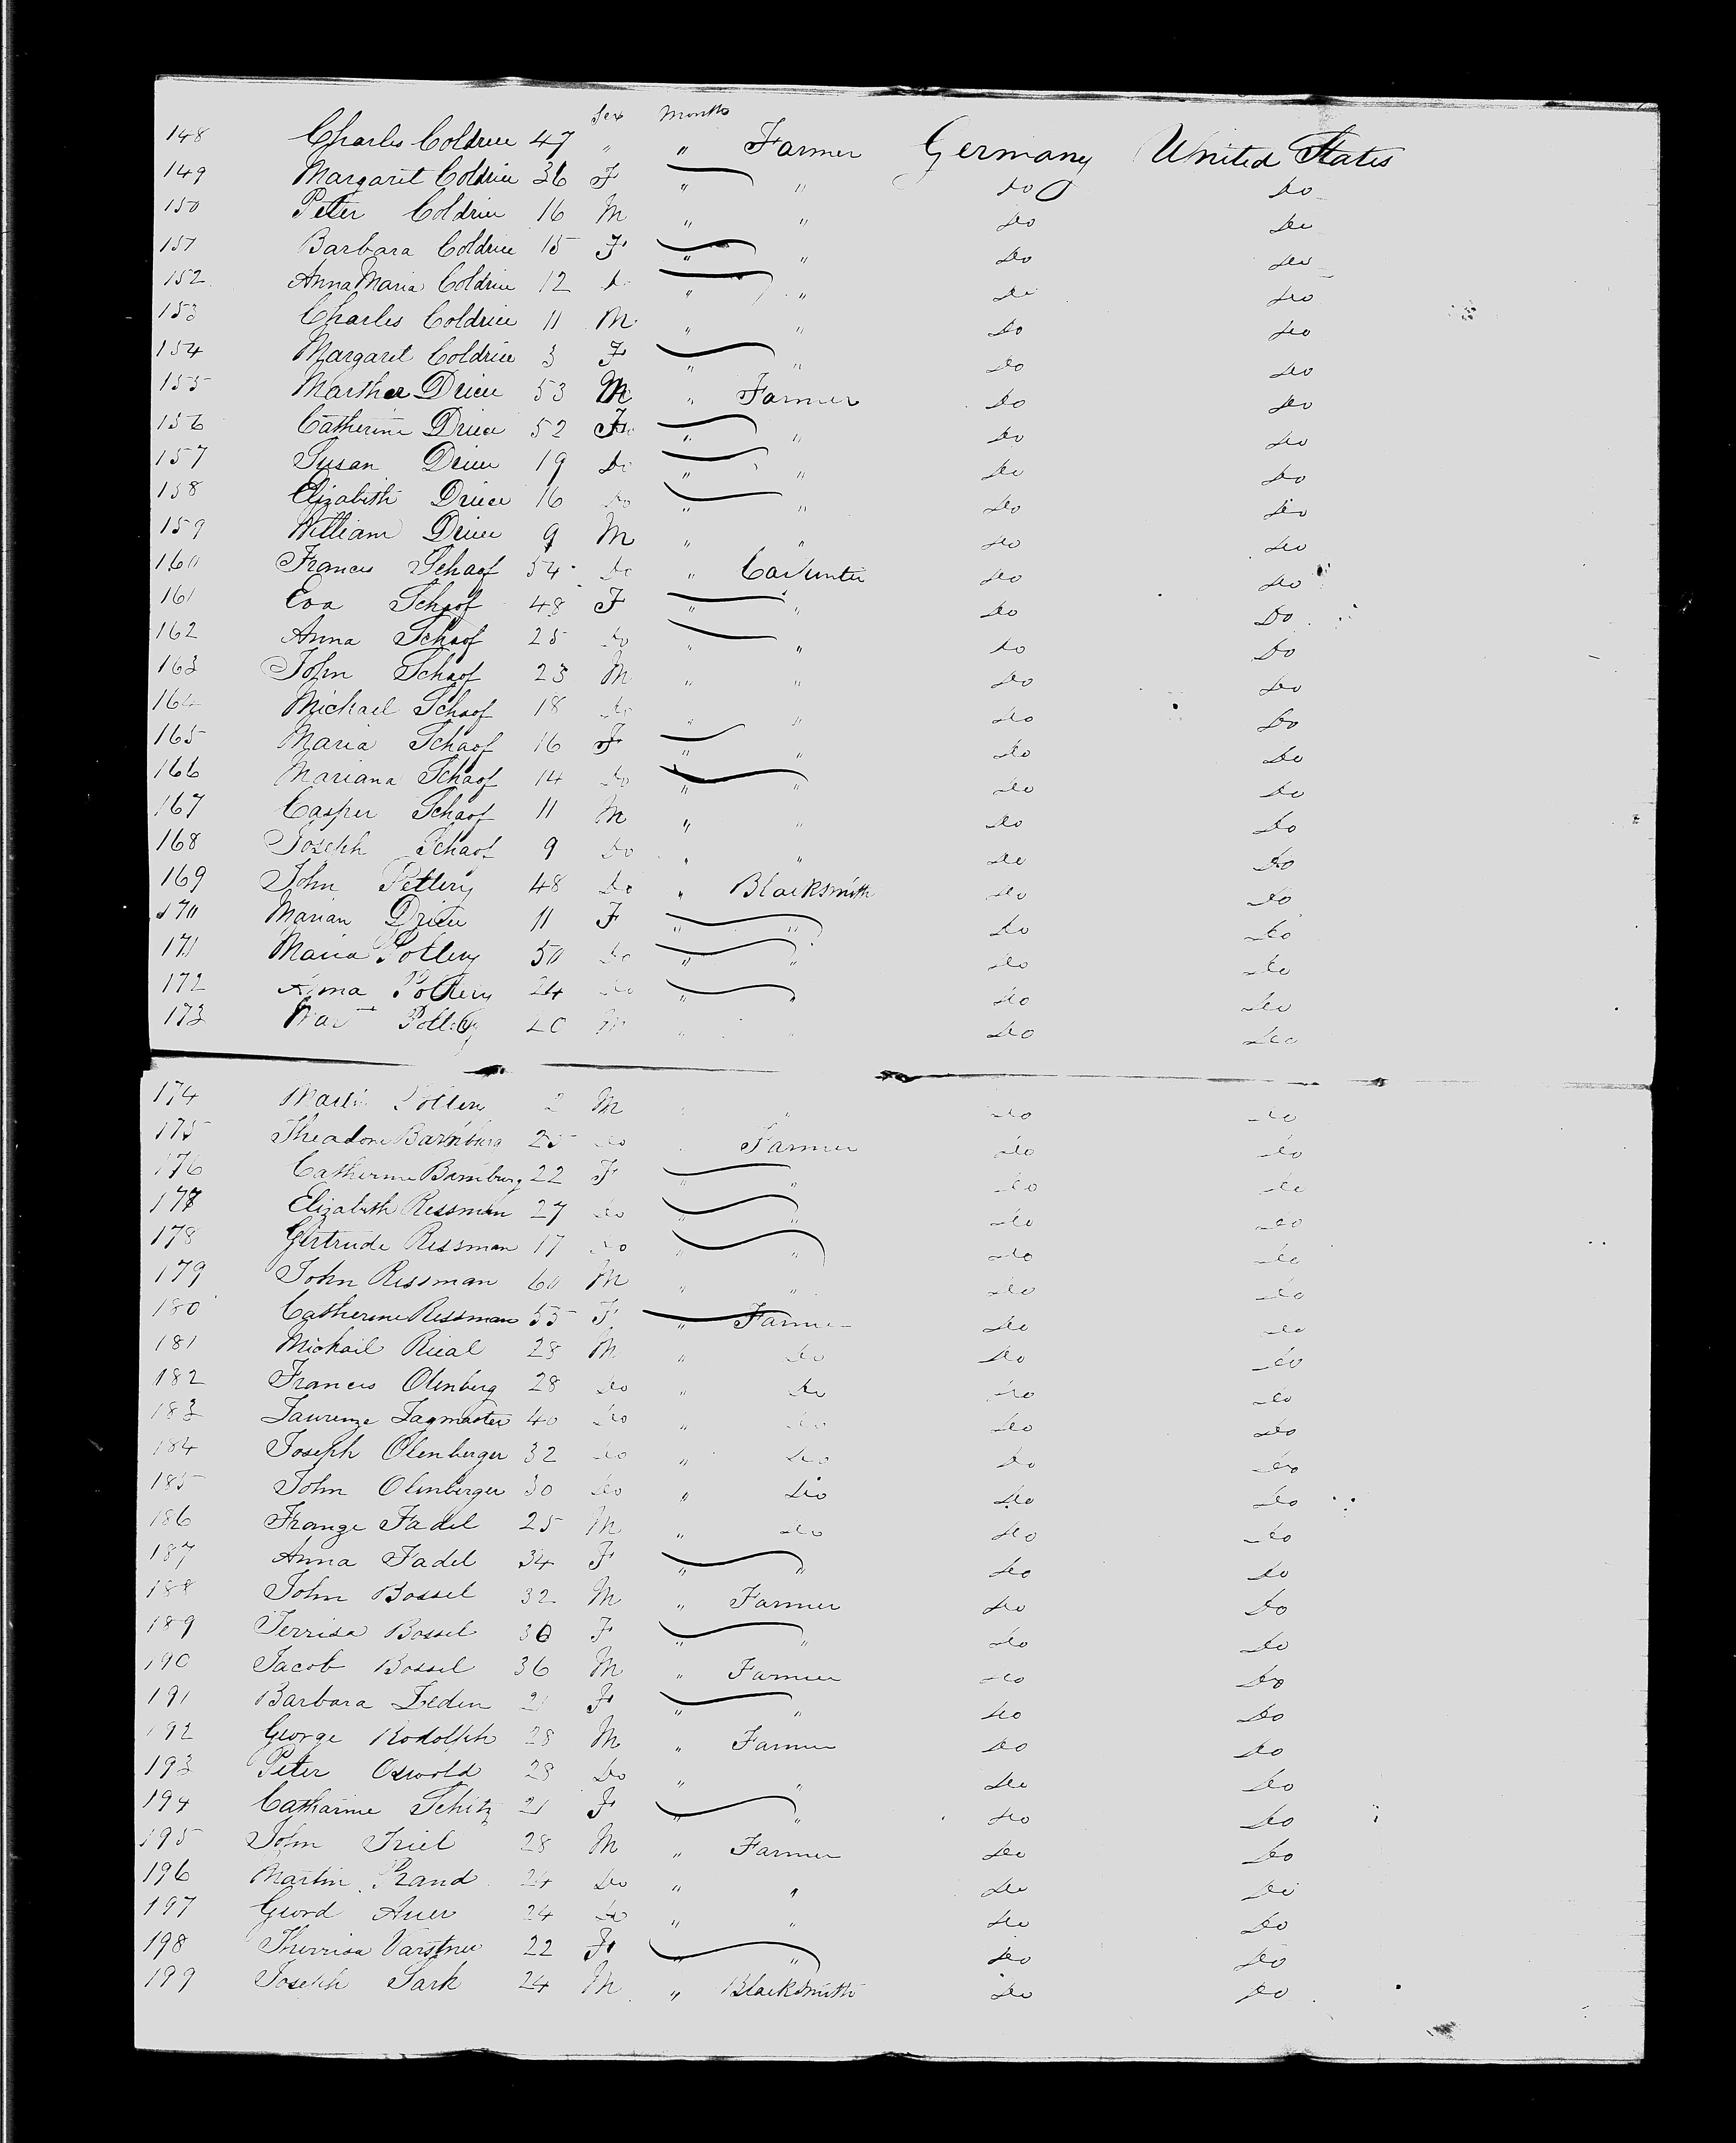 Sex Months
148 Charles Coldrice 47 " " Farmer Germany United States
149 Margaret Coldrice 36 F " " Do Do
150 Peter Coldrice 16 M " " Do Do
151 Barbara Coldrice 15 F " " Do Do
152 Anna Maria Coldrice 12 Do " " Do Do
153 Charles Coldrice 11 M " " Do Do
154 Margaret Coldrice 3 F " " Do Do
155 Drieu 53 M " Farmer Do Do
156 Catherine Drieu 52 F " " Do Do
157 Susan Drieu 19 Do " " Do Do
158 Elizabeth Drieu 16 Do " " Do Do
159 William Drieu 9 M " " Do Do
160 Frances Schaof 54 Do " Carpenter Do Do
161 Eva Schaof 48 F " " Do Do
162 Anna Schaof 25 Do " " Do Do
163 John Schaof 23 M " " Do Do
164 Michael Schaof 18 Do " " Do Do
165 Maria Schaof 16 F " " Do Do
166 Mariana Schaof 14 Do " " Do Do
167 Casper Schaof 11 M " " Do Do
168 Joseph Schaof 9 Do " " Do Do
169 John Pottery 48 Do " Blacksmith Do Do
170 Marian Drieu 11 F " " Do Do
171 Maria Pottery 50 Do " " Do Do
172 Anna Pottery 24 Do " " Do Do
173 Pottery 20 M " " Do Do
174 Martin Pottery 2 M " " Do Do
175 Theadore Barnburg 25 Do Farmer Do Do
176 Catherine Barnburg 22 F " Do Do
177 Elizabeth Ressman 27 Do " " Do Do
178 Gertrude Ressman 17 Do " " Do Do
179 John Ressman 60 M " " Do Do
180 Catherine Ressman 55 F " Farmer Do Do
181 Michail Rieal 28 M " Do Do Do
182 Francis Olenberg 28 Do " Do Do Do
183 Laurenze Lagmaster 40 Do " Do Do Do
184 Joseph Olenberger 32 Do " Do Do Do
185 John Olenberger 30 Do " Do Do Do
186 Franze Fadel 25 M " Do Do Do
187 Anna Fadel 34 F " " Do Do
188 John Bossel 32 M " Farmer Do Do
189 Terrisa Bossel 30 F " " Do Do
190 Jacob Bossel 36 M " Farmer Do Do
191 Barbara Leden 21 F " " Do Do
192 George Rodolph 28 M " Farmer Do Do
193 Peter Oswold 28 Do " " Do Do
194 Catharine Schitz 21 F " " Do Do
195 John Triel 28 M " Farmer Do Do
196 Martin Rand 24 Do " " Do Do
197 Geord Auer 24 Do " " Do Do
198 Therrisa Varstner 22 F " " Do Do
199 Joseph Sark 24 M " Blacksmith Do Do